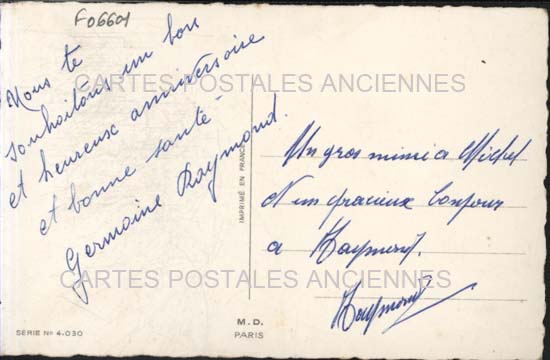 F06601
Nous te
souhaitons un bon
et heureux anniversaire
et bonne santé
Germaine Raymond.
CARTES POSTALES ANCIENNES
IMPRIMÉ EN FRANCE
Un gros mimi a Michel
et un gracieux bonjour
a Raymond.
Raymond
CARTES POSTALES ANCIENNES
SÉRIE No 4-030
M.D.
PARIS